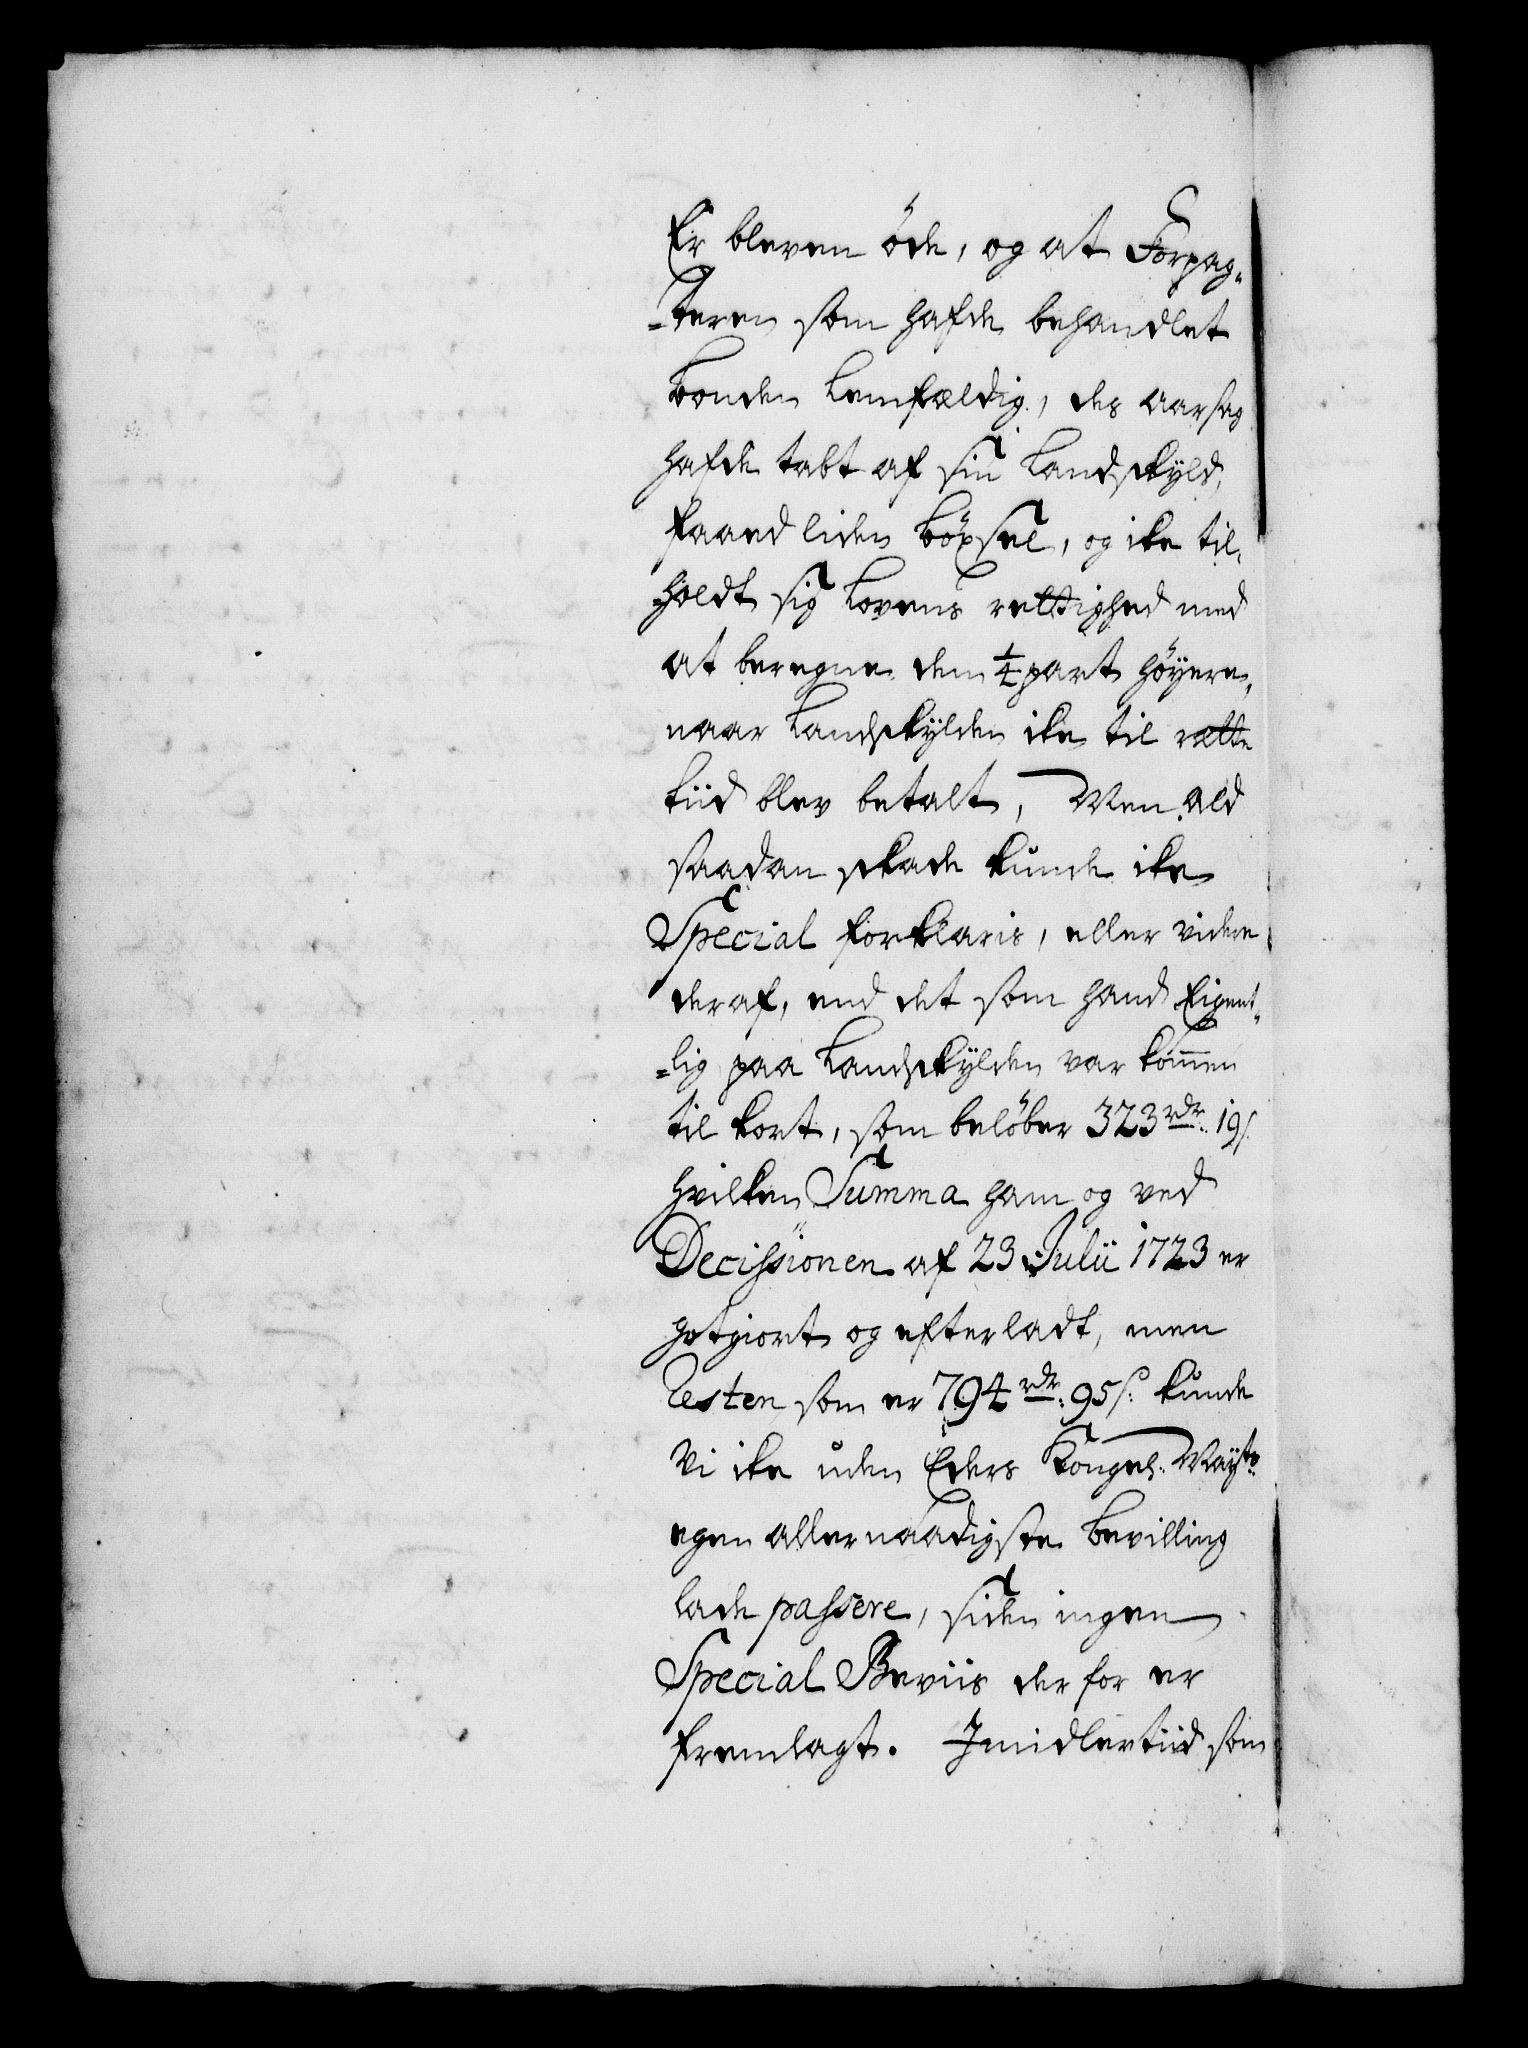 Er bleven öde, og at Forpag-
-teren som hafde behandlet
bonden lemfældig, des aarsag
hafde tabt af sin Landskyld,
faaed liden böxsel, og ike til-
holdt sig Lovens rettighed med
at beregne den ¼ part höyere,
naar Landskylden ike til rætte
tiid blev betalt, Men ald
saadan skade kunde ike
Special forklaris, eller videre
deraf, end det som hand Eigent-
-lig paa Landskylden var kommen
til kort, som belöber 323 rdr. 19 s.
hvilken Summa ham og ved
Decissionen af 23 Julii 1723 er
gotgiort og efterladt, men
Resten som er 794 rdr: 95 s: kunde
Vi ike uden Eders Kongel: Mayts
egen allernaadigste bevilling
lade passere, siden ingen
Special Beviis der for er
fremlagt. Imidlertiid som